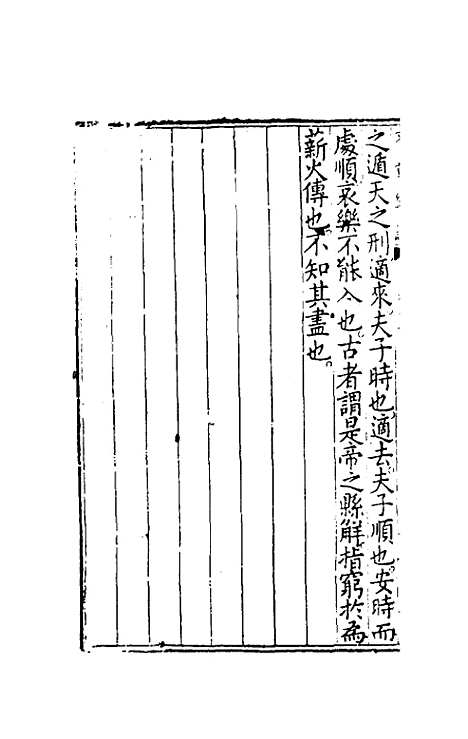 之遁天之刑適來夫子時也適去夫子順也安時而
處順哀樂不能入也古者謂是帝之縣解指窮於為
薪火傳也不知其盡也